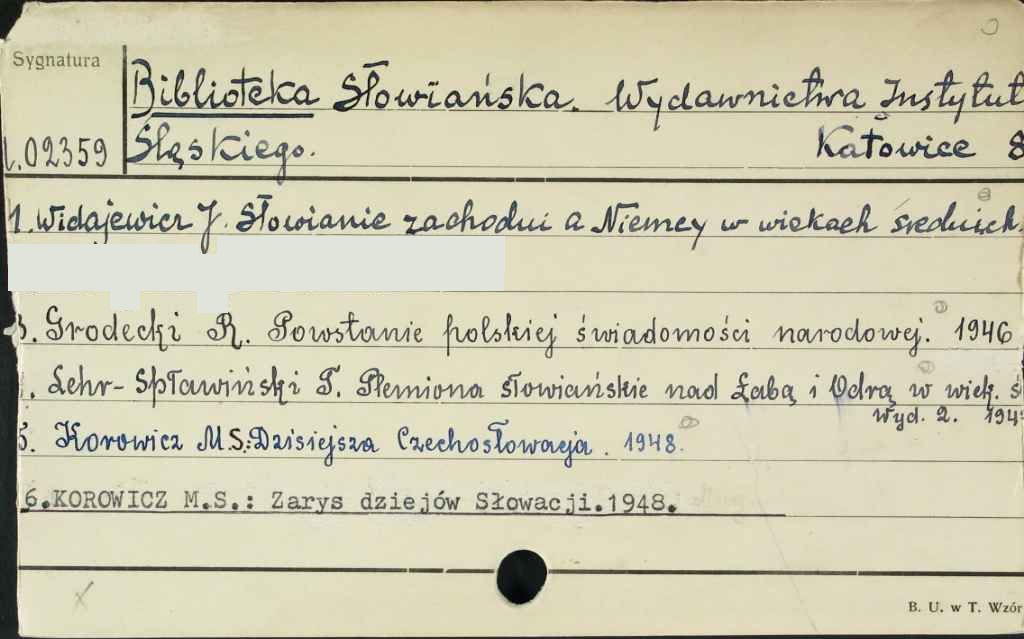 Sygnatura
Biblioteka Słowiańska. Wydawnictwa Instytut
02359 Śląskiego. Katowice 8
1. Widajewicz J. Słowianie zachodni a Niemcy w wiekach średnich.
3. Grodecki R. Powstanie polskiej świadomości narodowej. 1946
. Lehr-Spławiński T. Plemiona słowiańskie nad Łabą i Odrą w wiek. ś
Wyd. 2. 194
5. Korowicz M.S.: Dzisiejsza Czechosłowacja. 1948.
6.KOROWICZ M.S.: Zarys dziejów Słowacji.1948.
B. U. w T. Wzór